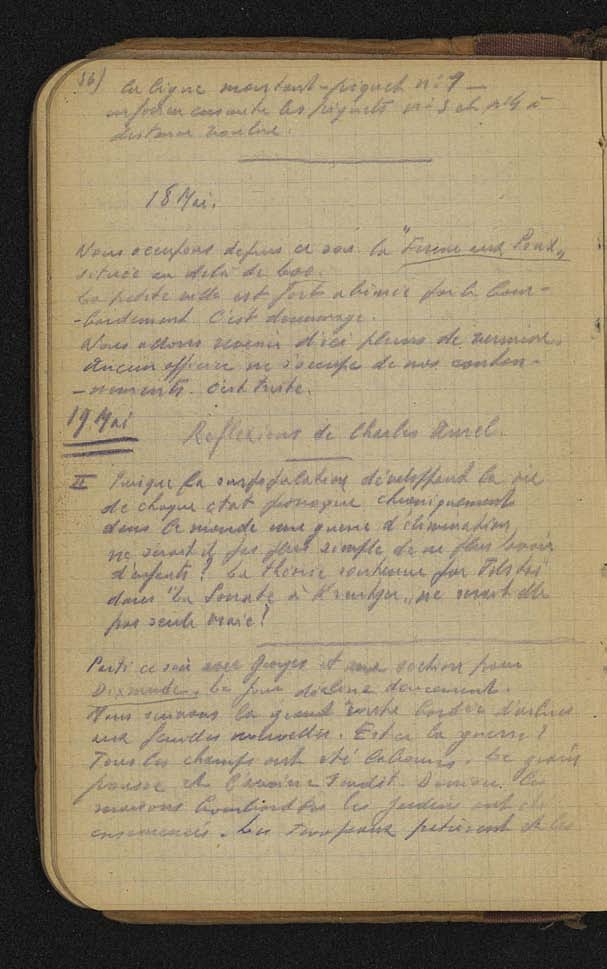 56)
la ligne montant-piquet n: 9 –
enfoncer ensuite les piquets n: 3 et n: 4 à
distance voulue.
18 Mai.
Nous occupons depuis ce soir la "Ferme aux Poux"
située au delà de Loo.
La petite ville est fort abimée par le bom-
-bardement. C'est dommage.
Nous allons revenir d'ici pleins de vermine.
Aucun officier ne s'occupe de nos canton-
-nements. C'est triste.
19 Mai
Reflexions de Charles Aurel.
II Puisque la surpopulation développant la vie
de chaque état provoque chroniquement
dans le monde une guerre d'élimination,
ne serait il pas plus simple de ne plus avoir
d'enfants? La théorie soutenue par Tolstoï
dans "La Sonate à Kreutzer", ne serait elle
pas seule vraie?
Parti ce soir avec Georges et une section pour
Dixmude. Le jour décline doucement.
Nous suivons la grand'route bordée d'arbres
aux feuilles nouvelles. Est-ce la guerre?
Tous les champs ont été labourés. Le grain
pousse et verdit. les
maisons bombardées les jardins ont été
ensemencés. Les et les